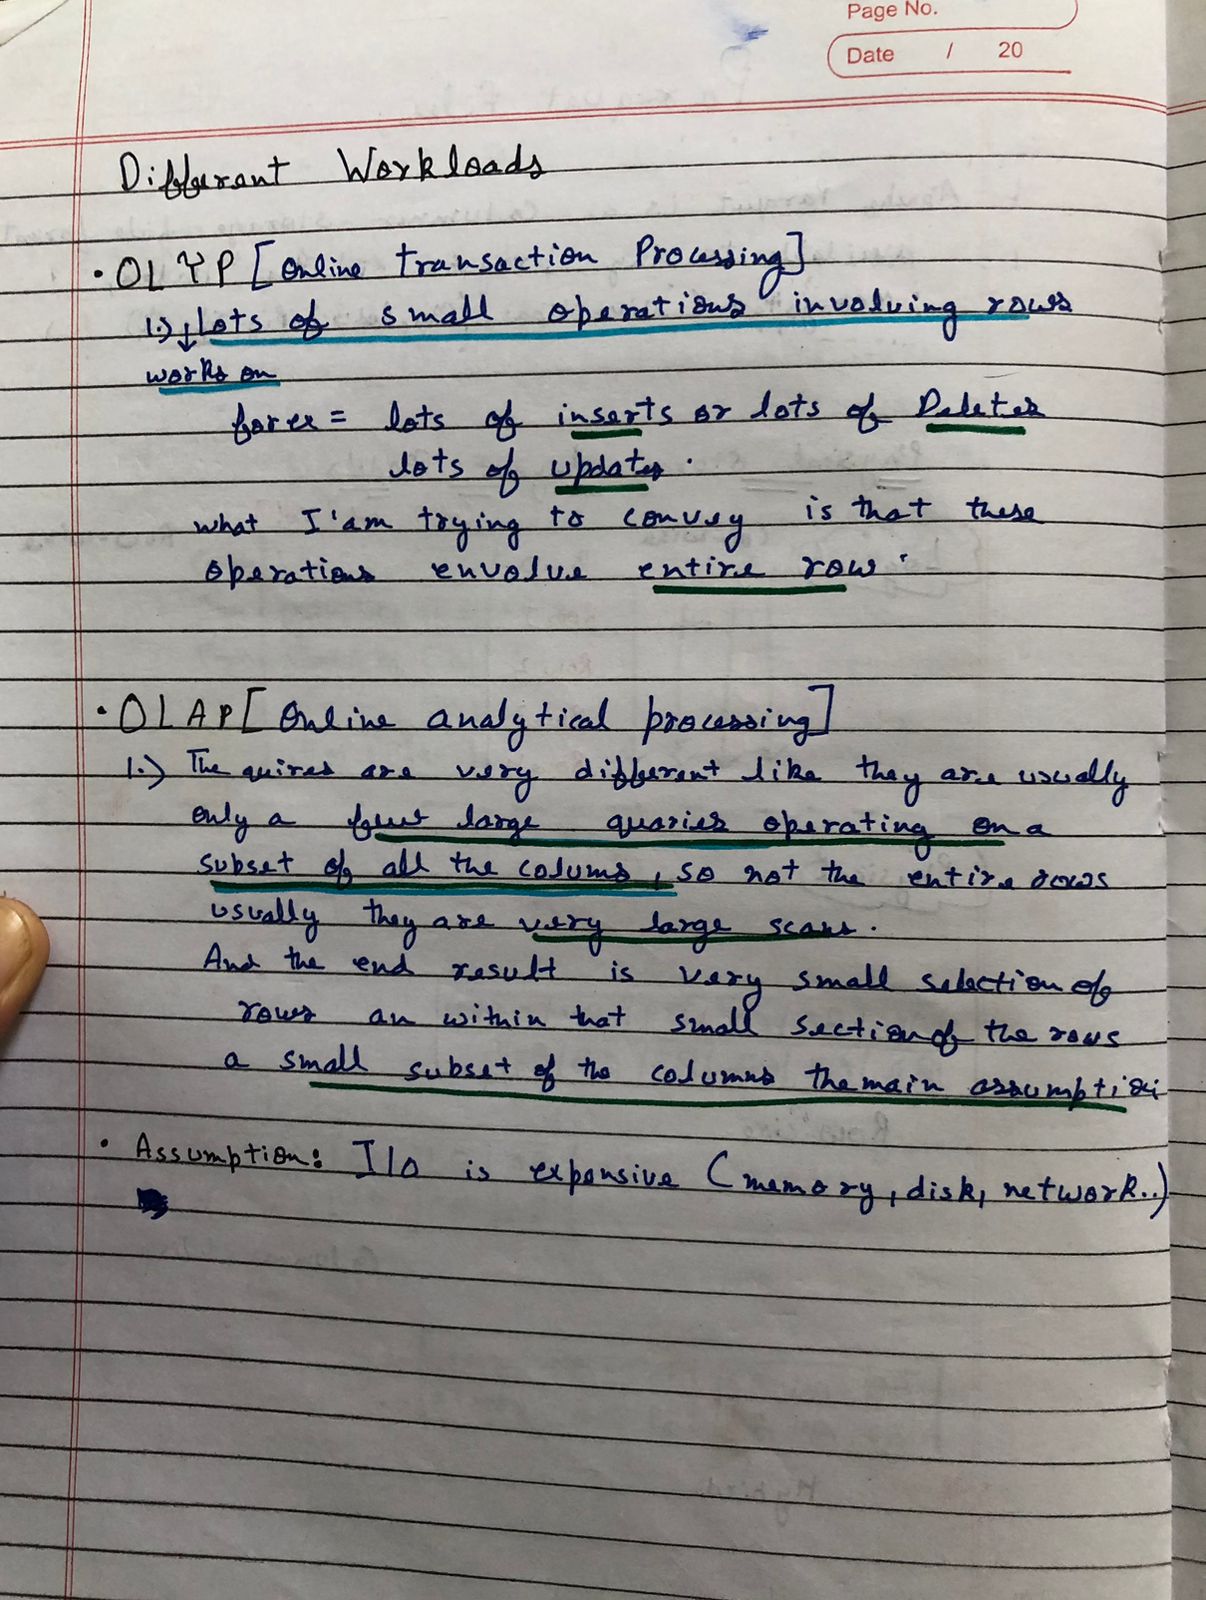 Page No.
Date / 20
Different Workloads
• OLTP [Online transaction Processing]
1.) Lots of small operations involving rows
works on
for ex = lots of inserts or lots of Deletes
lots of updates.
what I'am trying to convey is that these
operations envolve entire row.
• OLAP [Online analytical processing]
1.) The quires are very different like they are usually
only a few large quaries operating on a
subset of all the colums, so not the entire rows
usually they are very large scans.
And the end result is very small selection of
rows an within that small section of the rows
a small subset of the columns the main assumption
• Assumption: I/O is expensive (memory, disk, network..)